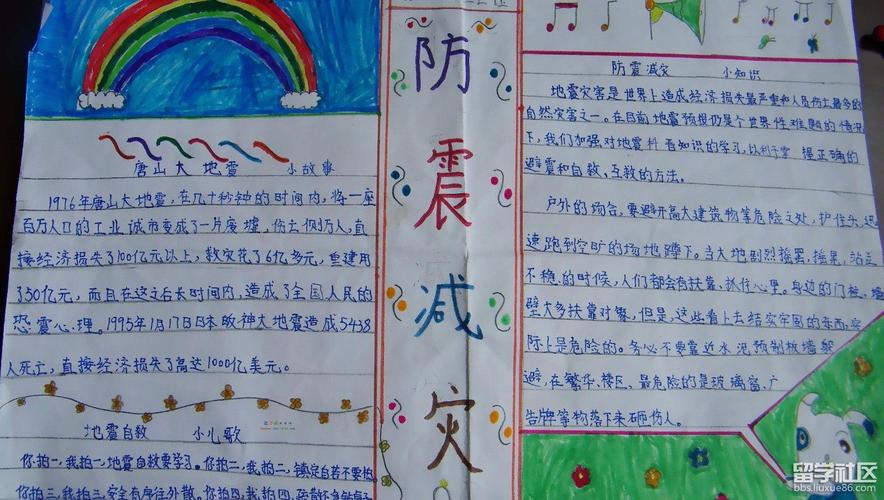 唐山大地震 小故事
1976年唐山大地震,在几十秒钟的时间内,将一座
百万人口的工业诚市变成了一片废墟,伤亡 万人,直
接经济损失了100亿元以上,救灾花了6亿多元,重建用
了50亿元,而且在这之后长时间内,造成了全国人民的
恐震心理。1995年1月17日日本阪神大地震造成5438
人死亡,直接经济损失了高达1000亿美元。
地震自救 小儿歌
你拍一,我拍一,地震自救要学习。你拍二,我拍二,镇定自若不要怕
你拍三,我拍三,安全有序往外散。你拍四,我拍四,
防震减灾
防震减灾 小知识
地震灾害是世界上造成经济损失最严重和人员伤亡最多的
自然灾害之一。在目前地震预报仍是个世界性难题的情况
下,我们加强对地震科普知识的学习,以利于掌握正确的
避震和自救、互救的方法。
户外的场合,要避开高大建筑物等危险之处,护住头,迅
速跑到空旷的场地蹲下。当大地剧烈摇罢,摇晃,站立
不稳的时候,人们都会有扶靠、抓住心里。身边的门柱、墙
壁大多扶靠对象,但是,这些看上去结实牢固的东西,实
际上是危险的。务必不要靠近水泥预制板墙 躲
避,在繁华、楼区、最危险的是玻璃窗、广
告牌等物落下来砸伤人。
留学社区
bbs.liuxue86.com